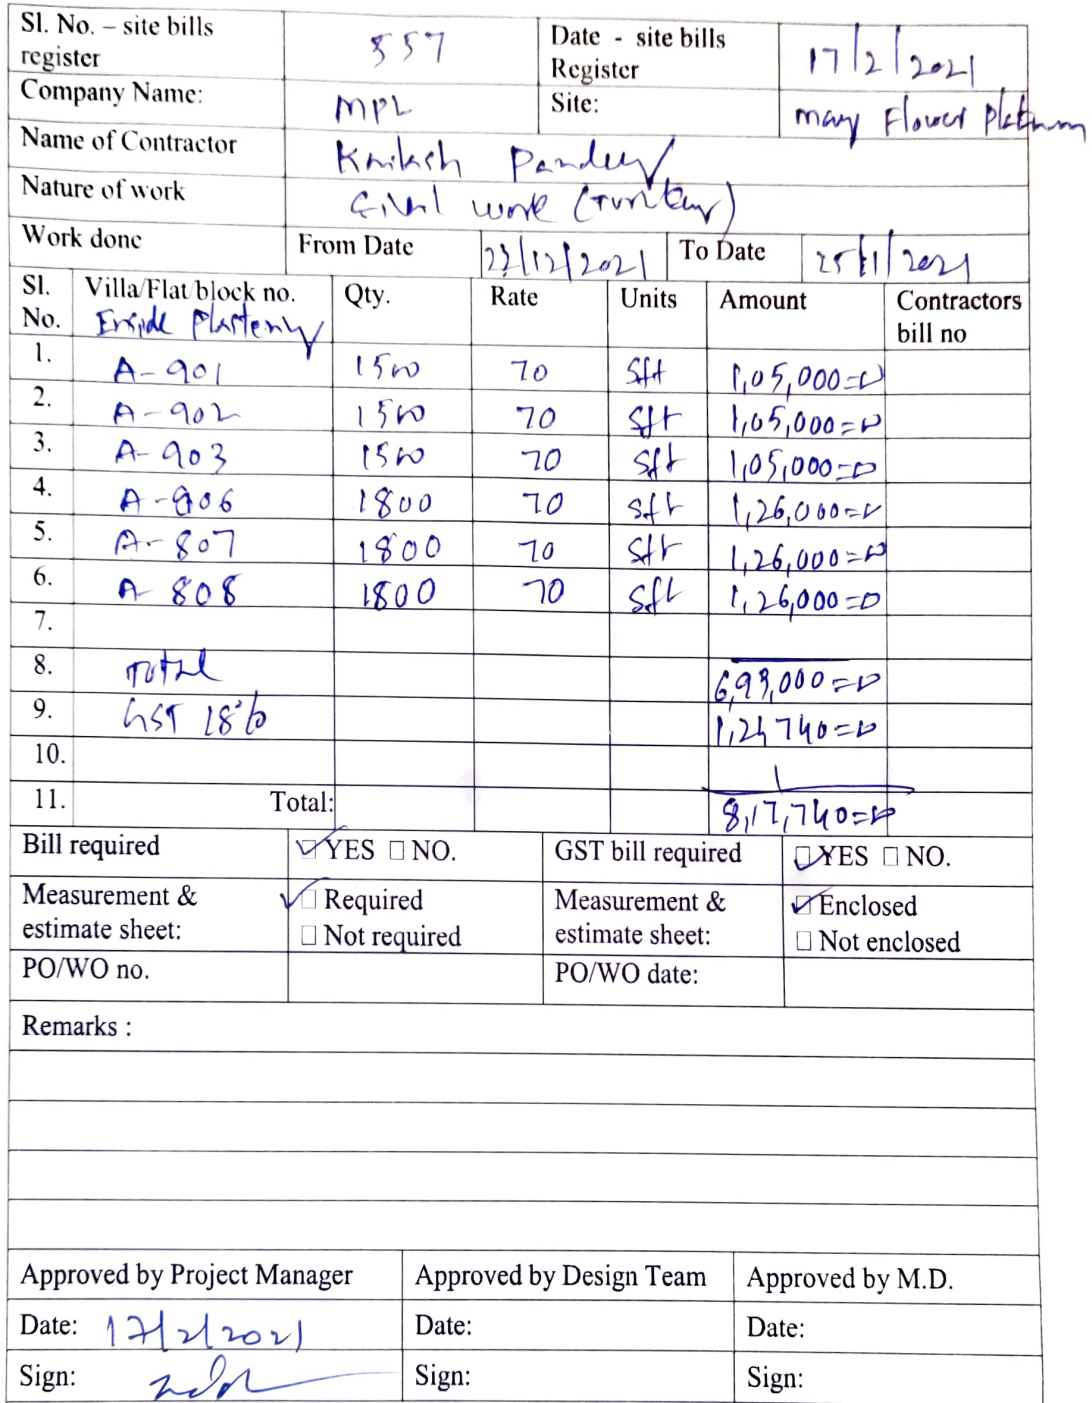 Sl. No. – site bills register 557 Date - site bills Register 17/2/2021
Company Name: MPL Site: May Flower Platinum
Name of Contractor Kailash Pandey
Nature of work Civil work (Turnkey)
Work done From Date 23/12/2021 To Date 25/1/2021
Sl. No. Villa/Flat/block no. Qty. Rate Units Amount Contractors bill no
Inside Plastering
1. A-901 1500 70 Sft 1,05,000=0
2. A-902 1500 70 Sft 1,05,000=0
3. A-903 1500 70 Sft 1,05,000=0
4. A-906 1800 70 Sft 1,26,000=0
5. A-807 1800 70 Sft 1,26,000=0
6. A-808 1800 70 Sft 1,26,000=0
7.
8. Total 6,93,000=0
9. GST 18% 1,24,740=0
10.
11. Total: 8,17,740=0
Bill required YES NO. GST bill required YES NO.
Measurement & estimate sheet: Required Not required Measurement & estimate sheet: Enclosed Not enclosed
PO/WO no. PO/WO date:
Remarks :
Approved by Project Manager Approved by Design Team Approved by M.D.
Date: 17/2/2021 Date: Date:
Sign: Sign: Sign: